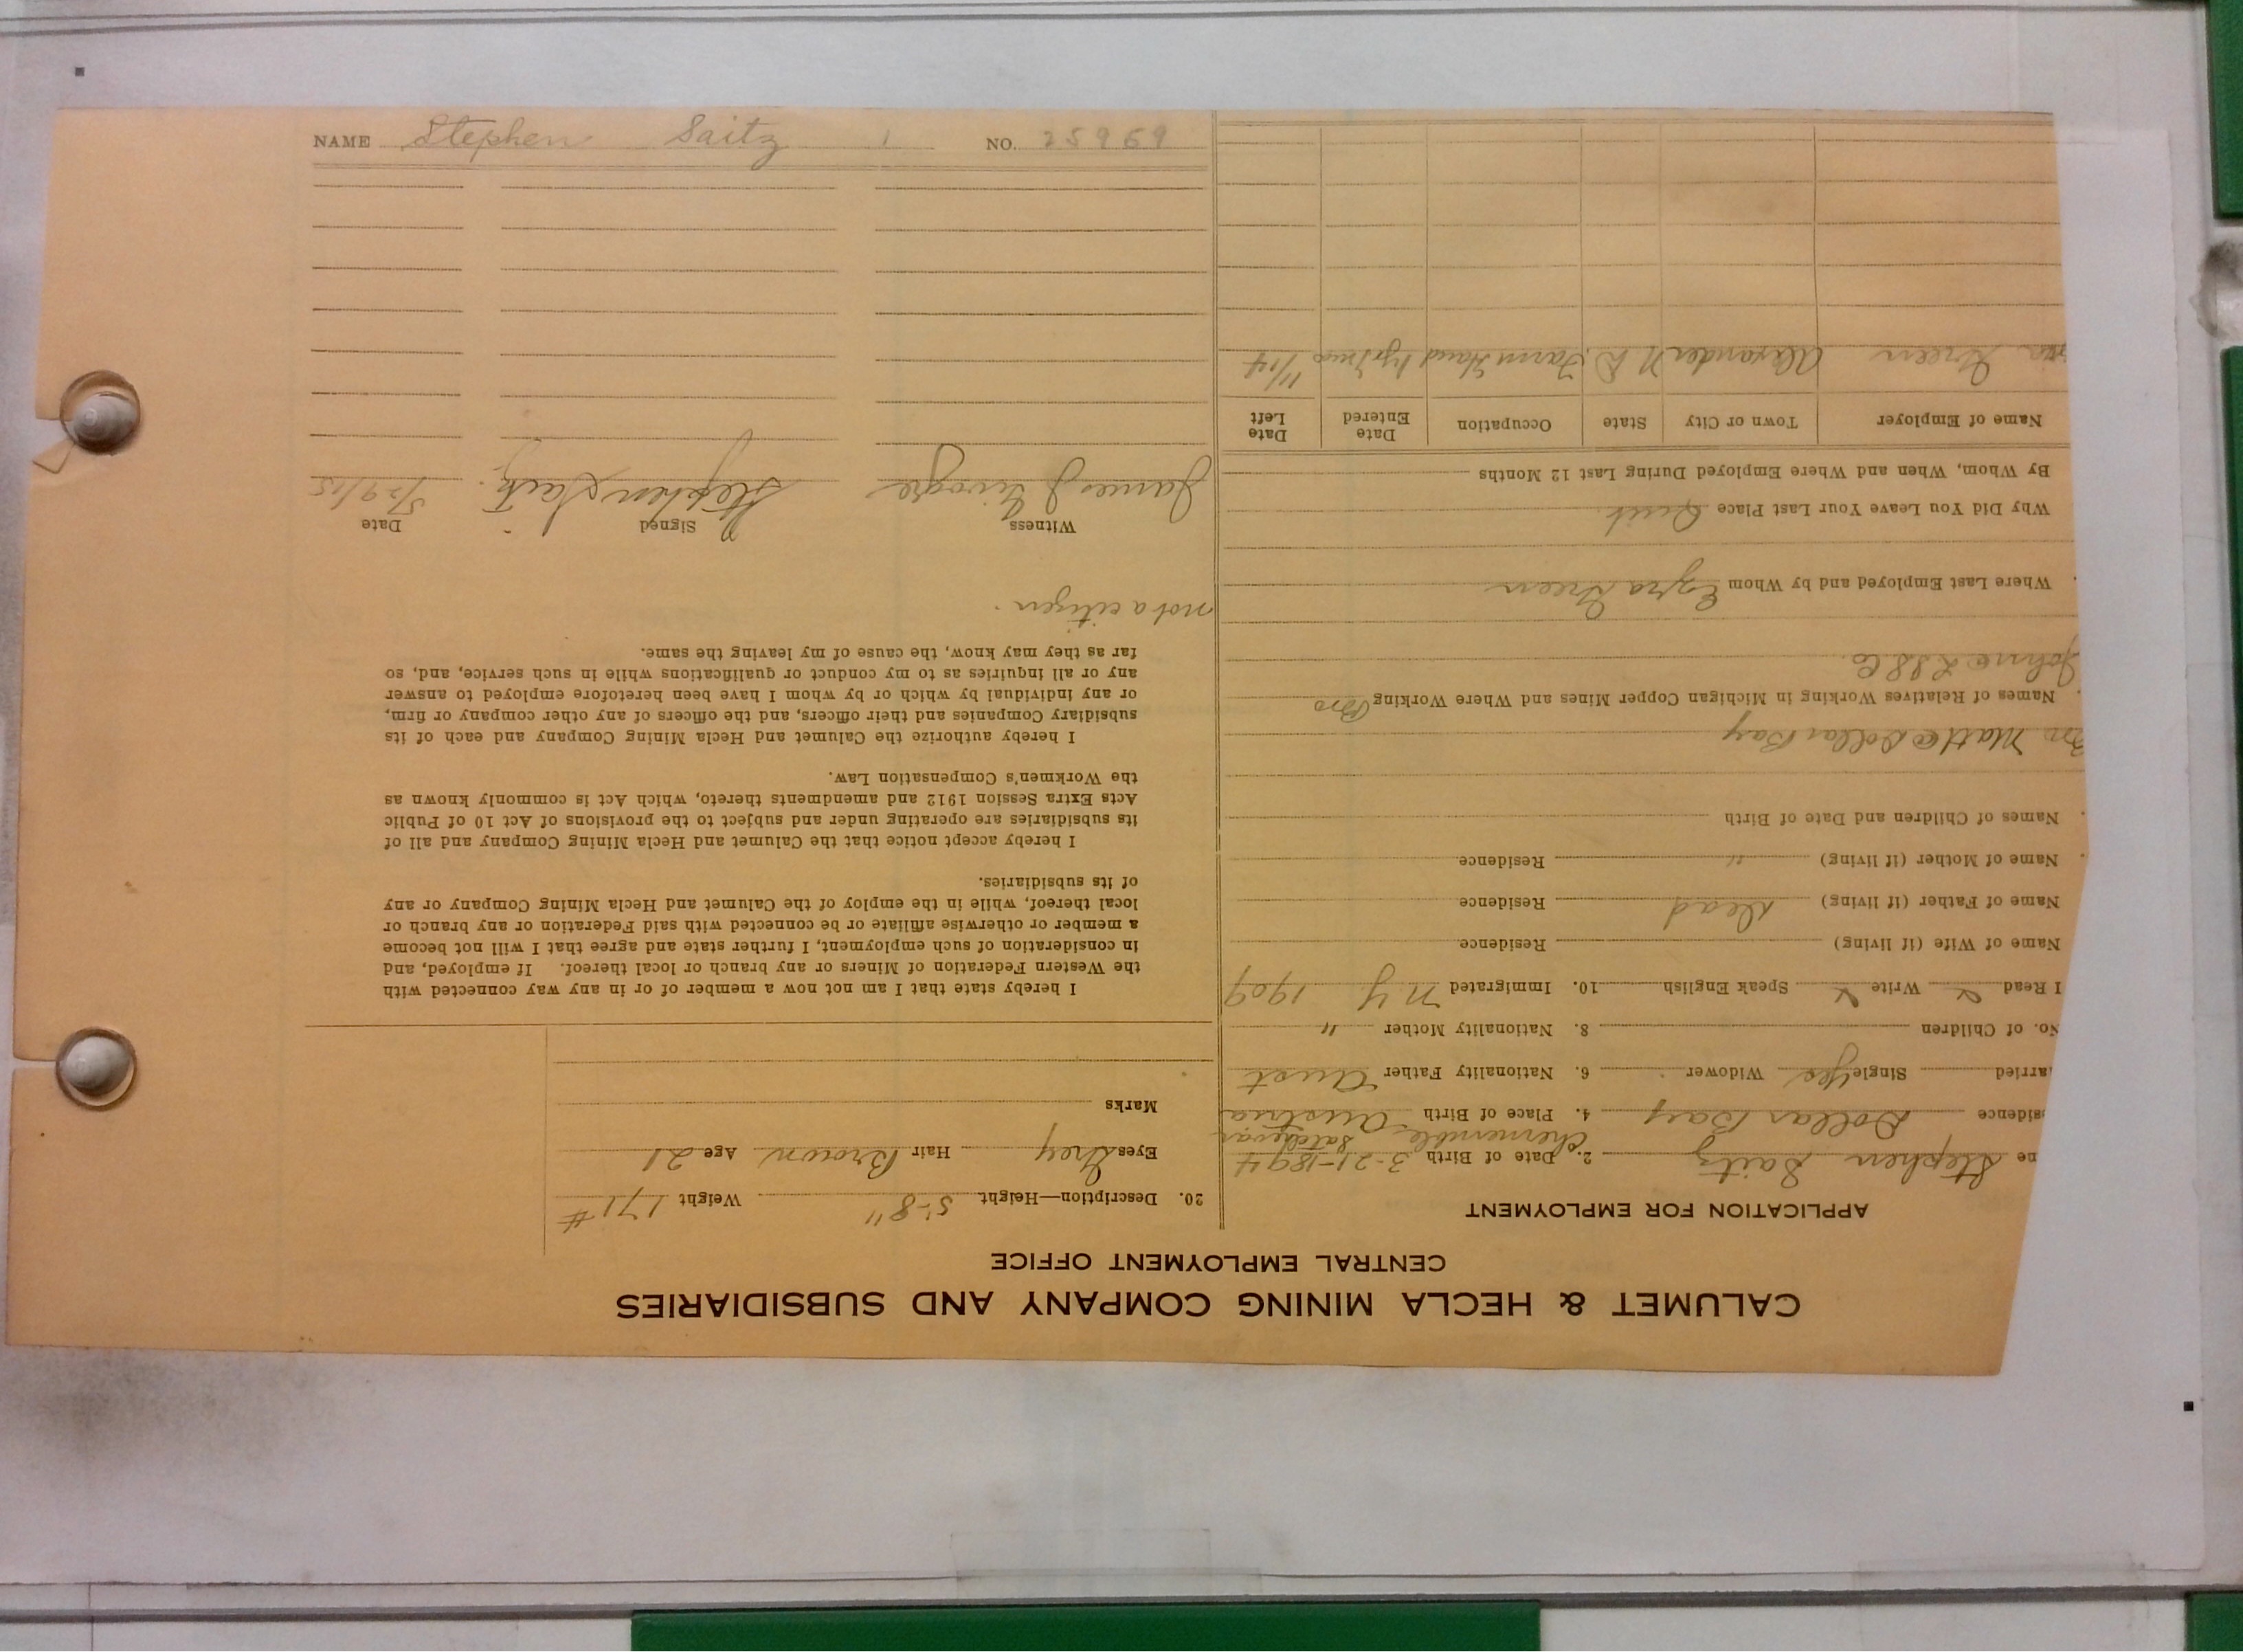 CALUMET & HECLA MINING COMPANY AND SUBSIDIARIES
CENTRAL EMPLOYMENT OFFICE
APPLICATION FOR EMPLOYMENT
ne Stephen Saitz 2. Date of Birth 3-21-1894
sidence Dollar Bay 4. Place of Birth Austria
arried Single Yes Widower 6. Nationality Father Aust
No. of Children 8. Nationality Mother "
I Read Write Speak English 10. Immigrated N Y 1909
Name of Wife (if living) Residence
Name of Father (if living) Dead Residence
Name of Mother (if living) " Residence
Names of Children and Date of Birth
Matt @ Dollar Bay
Names of Relatives Working in Michigan Copper Mines and Where Working Bro
John @ L S S Co.
Where Last Employed and by Whom Ezra Green
Why Did You Leave Your Last Place Quit
By Whom, When and Where Employed During Last 12 Months
Name of Employer Town or City State Occupation Date Entered Date Left
Green Alexander N D. Farm Hand 11/14
20. Description—Height 5'-8" Weight 171 #
Eyes Grey Hair Brown Age 21
Marks
I hereby state that I am not now a member of or in any way connected with
the Western Federation of Miners or any branch or local thereof. If employed, and
in consideration of such employment, I further state and agree that I will not become
a member or otherwise affiliate or be connected with said Federation or any branch or
local thereof, while in the employ of the Calumet and Hecla Mining Company or any
of its subsidiaries.
I hereby accept notice that the Calumet and Hecla Mining Company and all of
its subsidiaries are operating under and subject to the provisions of Act 10 of Public
Acts Extra Session 1912 and amendments thereto, which Act is commonly known as
the Workmen's Compensation Law.
I hereby authorize the Calumet and Hecla Mining Company and each of its
subsidiary Companies and their officers, and the officers of any other company or firm,
or any individual by which or by whom I have been heretofore employed to answer
any or all inquiries as to my conduct or qualifications while in such service, and, so
far as they may know, the cause of my leaving the same.
not a citizen.
Witness Signed Date
James J Stephen Saitz. 5/29/15
NAME Stephen Saitz 1 NO. 25969